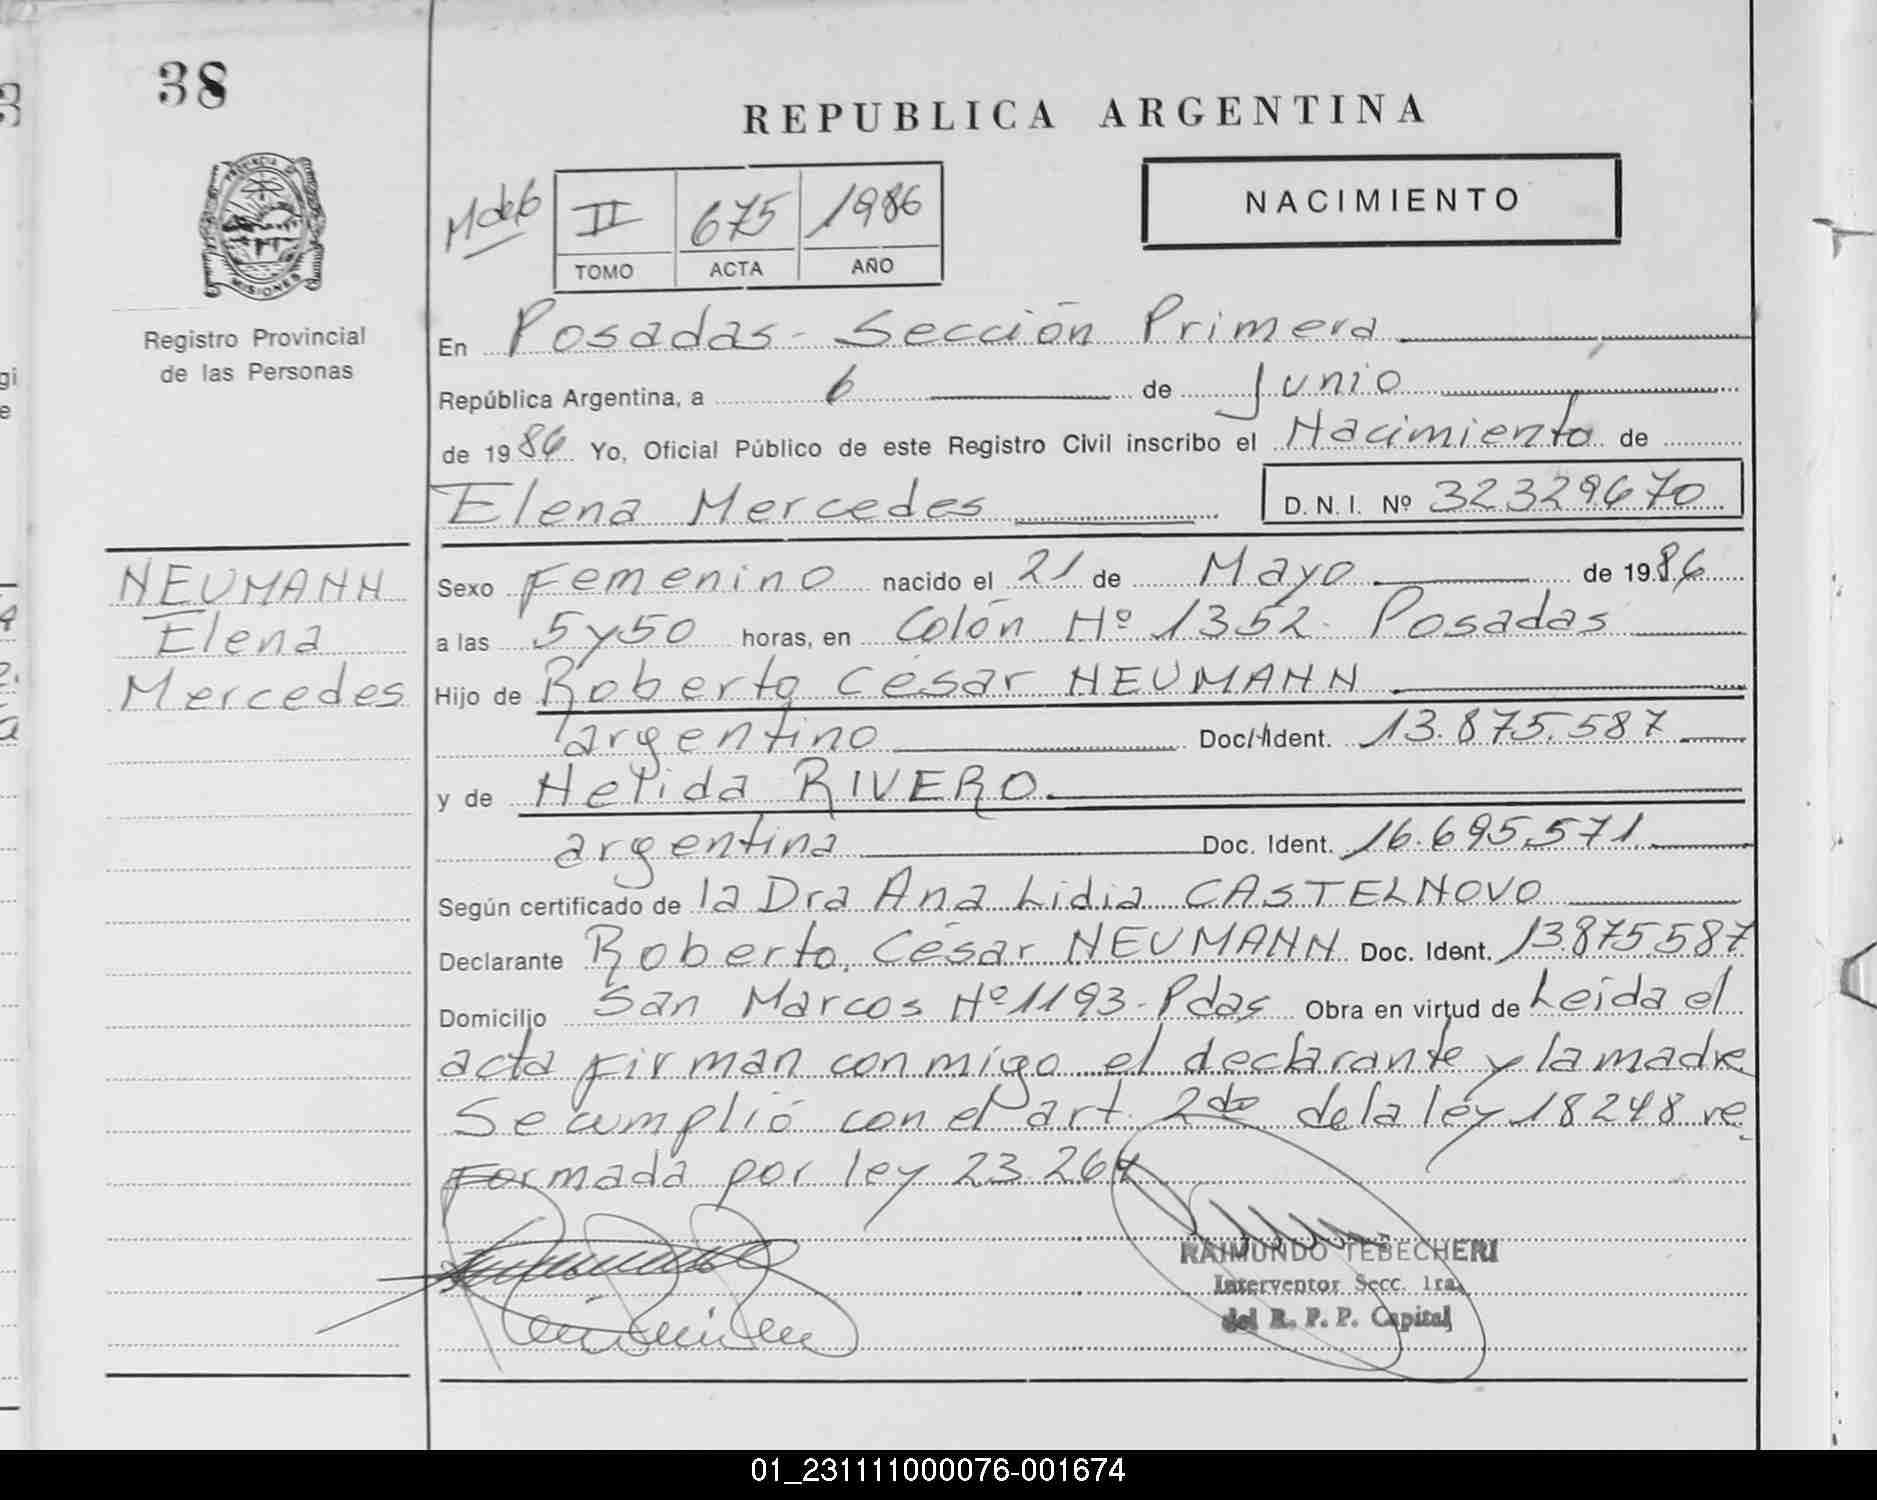 38
REPUBLICA ARGENTINA
PROVINCIA D
MISIONES
Registro Provincial
de las Personas
II 675 1986
TOMO ACTA AÑO
NACIMIENTO
En Posadas - Sección Primera
República Argentina, a 6 de Junio
de 1986 Yo, Oficial Público de este Registro Civil inscribo el Nacimiento de
Elena Mercedes D. N. I. Nº 32329670
NEUMANN
Elena
Mercedes
Sexo Femenino nacido el 21 de Mayo de 1986
a las 5y50 horas, en Colón Nº 1352. Posadas
Hijo de Roberto César NEUMANN
argentino Doc. Ident. 13.875.587
y de Nelida RIVERO
argentina Doc. Ident. 16.695.571
Según certificado de la Dra Ana Lidia CASTELNOVO
Declarante Roberto César NEUMANN Doc. Ident. 13.875.587
Domicilio San Marcos Nº 1193 - Pdas Obra en virtud de Leida el
acta firman conmigo el declarante y la madre
Se cumplió con el art. 2do de la ley 18248 re
formada por ley 23.264
RAIMUNDO TEBECHERI
Interventor Secc. 1ra.
del R. P. P. Capital
01_231111000076-001674